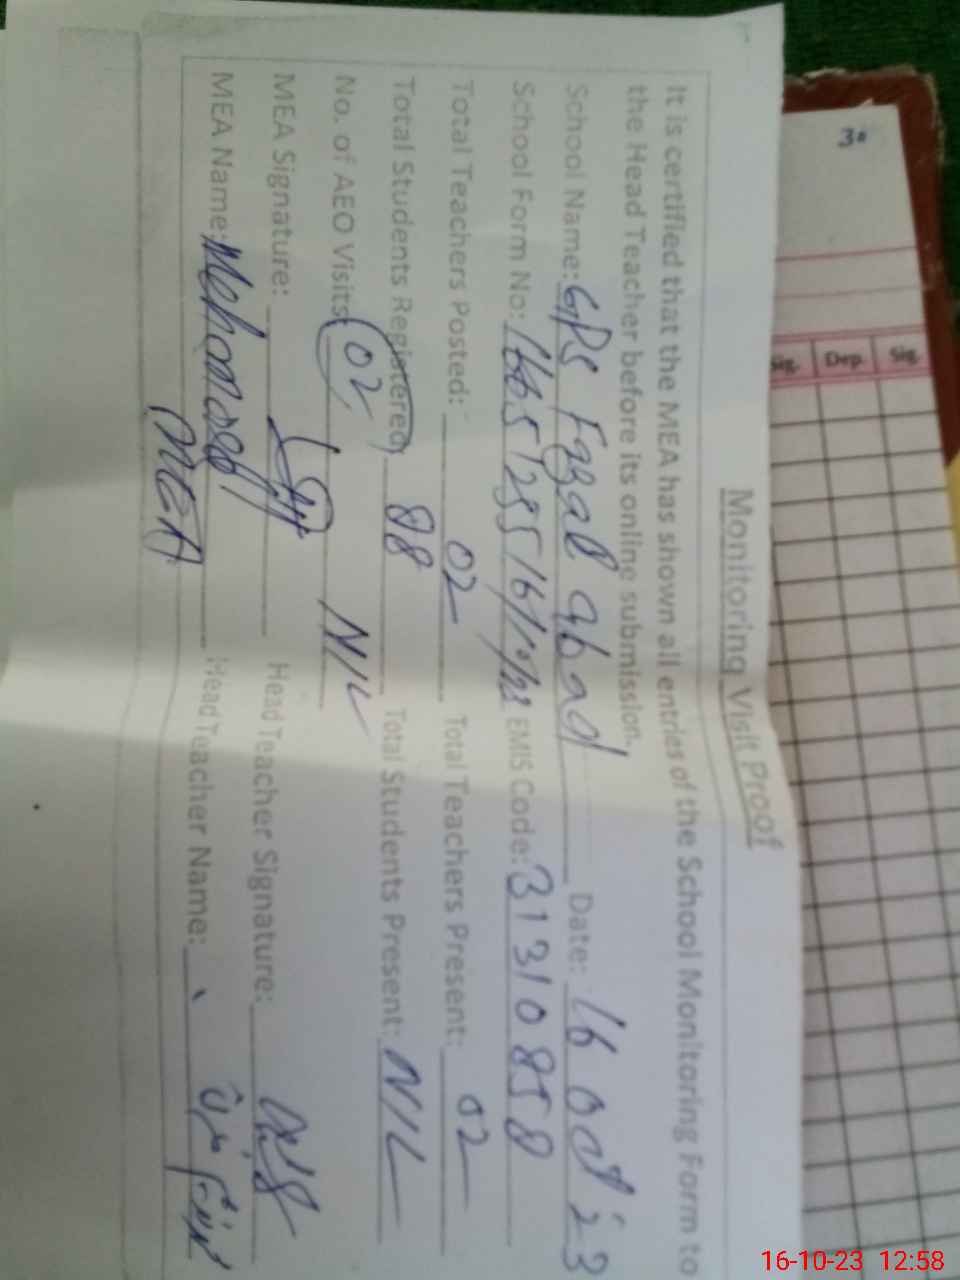 Monitoring Visit Proof
It is certified that the MEA has shown all entries of the School Monitoring Form to
the Head Teacher before its online submission.
School Name: GPS Fazal abad Date: 16 Oct 23
School Form No: EMIS Code: 31310858
Total Teachers Posted: 02 Total Teachers Present: 02
Total Students Registered: 88 Total Students Present: NIL
No. of AEO Visits: 02 NIL
MEA Signature: Head Teacher Signature:
MEA Name: Head Teacher Name:
MEA
30
Sig. Dep. Sig.
16-10-23 12:58